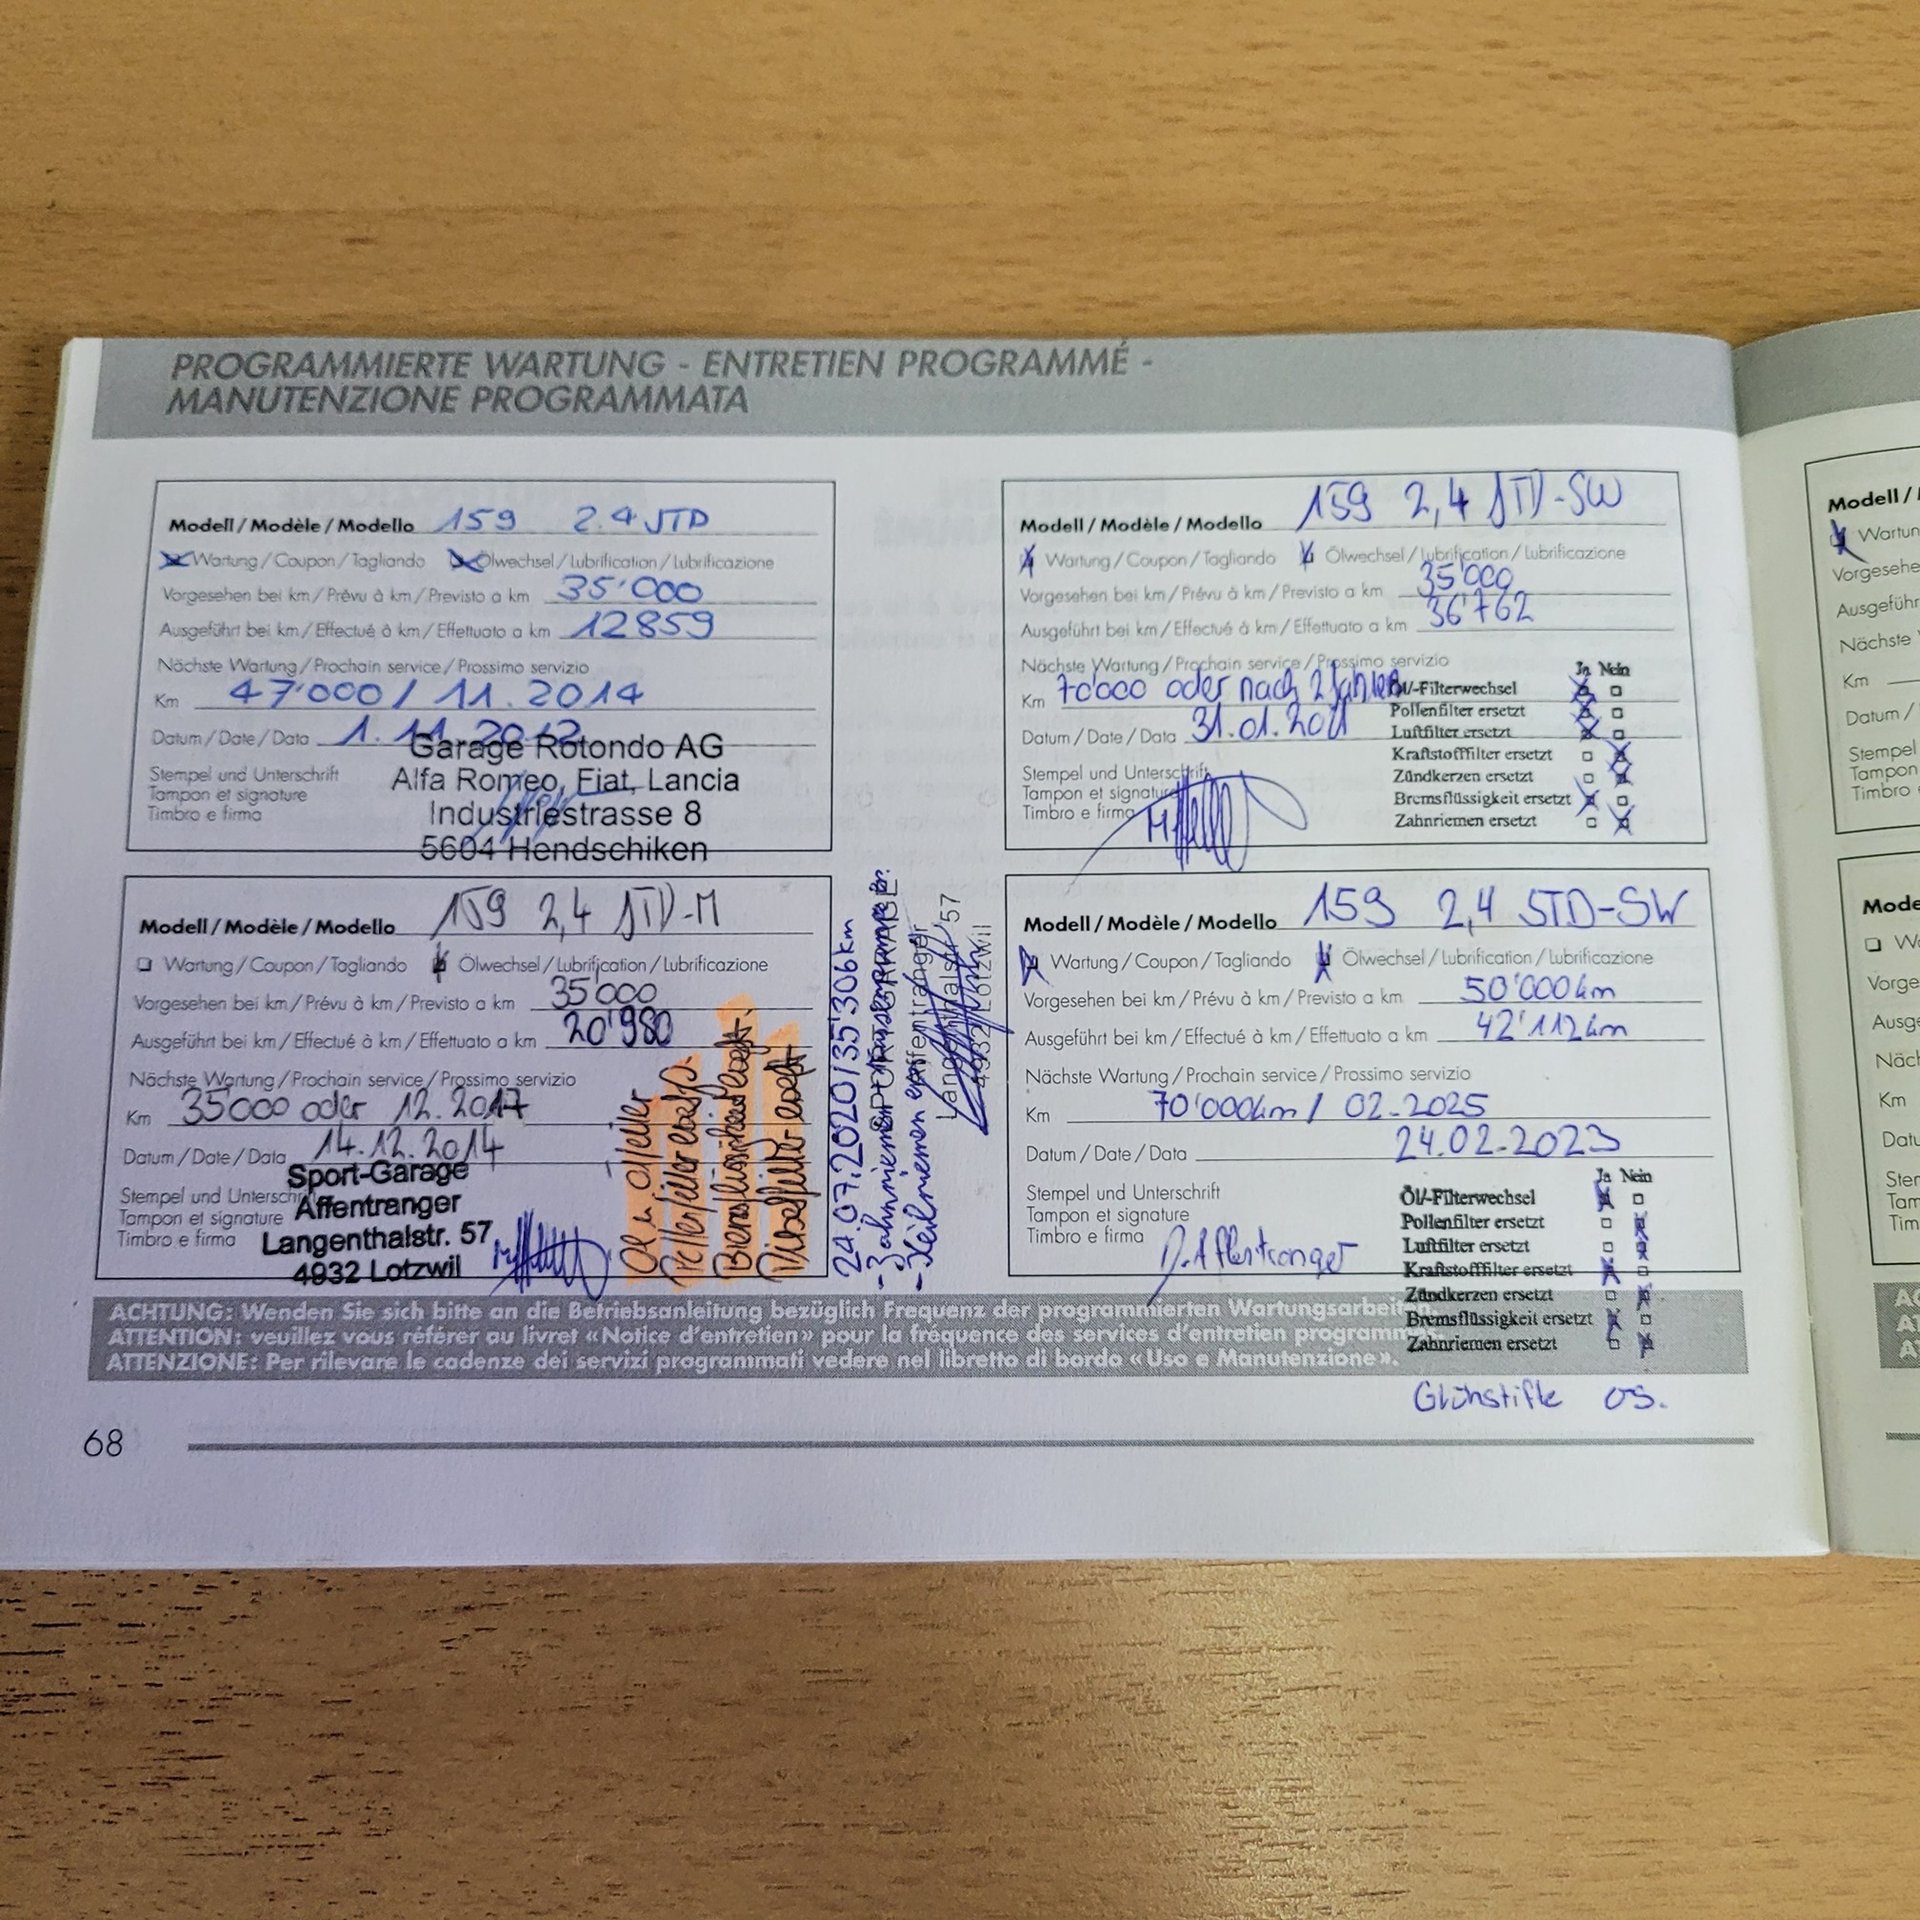 PROGRAMMIERTE WARTUNG - ENTRETIEN PROGRAMMÉ -
MANUTENZIONE PROGRAMMATA
Modell / Modèle / Modello 159 2.4 JTD
Wartung / Coupon / Tagliando Ölwechsel / Lubrification / Lubrificazione
Vorgesehen bei km / Prévu à km / Previsto a km 35'000
Ausgeführt bei km / Effectué à km / Effettuato a km 12859
Nächste Wartung / Prochain service / Prossimo servizio
Km 47'000 / 11.2014
Datum / Date / Data 1.11.2012
Garage Rotondo AG
Stempel und Unterschrift Alfa Romeo, Fiat, Lancia
Tampon et signature
Timbro e firma Industriestrasse 8
5604 Hendschiken
Modell / Modèle / Modello 159 2,4 JTD-M
Wartung / Coupon / Tagliando Ölwechsel / Lubrification / Lubrificazione
Vorgesehen bei km / Prévu à km / Previsto a km 35'000
Ausgeführt bei km / Effectué à km / Effettuato a km 20'980
Nächste Wartung / Prochain service / Prossimo servizio
Km 35'000 oder 12.2017
Datum / Date / Data 14.12.2014
Sport-Garage
Stempel und Unterschrift Affentranger
Tampon et signature
Timbro e firma Langenthalstr. 57
4932 Lotzwil
Öl u. Filter
Pollenfilter ersetzt
Bremsflüssigkeit ersetzt
Dieselfilter ersetzt
24.07.2020/35'306km
- Zahnriemen
- Keilriemen ersetzt
SPORTGARAGE
Affentranger
Langenthalstr. 57
4932 Lotzwil
Modell / Modèle / Modello 159 2,4 JTD-SW
Wartung / Coupon / Tagliando Ölwechsel / Lubrification / Lubrificazione
Vorgesehen bei km / Prévu à km / Previsto a km 35'000
Ausgeführt bei km / Effectué à km / Effettuato a km 36'762
Nächste Wartung / Prochain service / Prossimo servizio
Km 70'000 oder nach 2 Jahren
Datum / Date / Data 31.01.2021
Stempel und Unterschrift
Tampon et signature
Timbro e firma
Ja Nein
Öl/-Filterwechsel
Pollenfilter ersetzt
Luftfilter ersetzt
Kraftstofffilter ersetzt
Zündkerzen ersetzt
Bremsflüssigkeit ersetzt
Zahnriemen ersetzt
Modell / Modèle / Modello 159 2,4 JTD-SW
Wartung / Coupon / Tagliando Ölwechsel / Lubrification / Lubrificazione
Vorgesehen bei km / Prévu à km / Previsto a km 50'000km
Ausgeführt bei km / Effectué à km / Effettuato a km 42'112km
Nächste Wartung / Prochain service / Prossimo servizio
Km 70'000km / 02.2025
Datum / Date / Data 24.02.2023
Stempel und Unterschrift
Tampon et signature
Timbro e firma D. Affentranger
Ja Nein
Öl/-Filterwechsel
Pollenfilter ersetzt
Luftfilter ersetzt
Kraftstofffilter ersetzt
Zündkerzen ersetzt
Bremsflüssigkeit ersetzt
Zahnriemen ersetzt
Glühstifte ers.
ACHTUNG: Wenden Sie sich bitte an die Betriebsanleitung bezüglich Frequenz der programmierten Wartungsarbeiten.
ATTENTION: veuillez vous référer au livret «Notice d'entretien» pour la fréquence des services d'entretien programm
ATTENZIONE: Per rilevare le cadenze dei servizi programmati vedere nel libretto di bordo «Uso e Manutenzione».
68
Modell /
Wartun
Vorgesehe
Ausgeführ
Nächste
Km
Datum /
Stempel
Tampon
Timbro e
Mode
Wa
Vorge
Ausge
Näch
Km
Datu
Ster
Tam
Tim